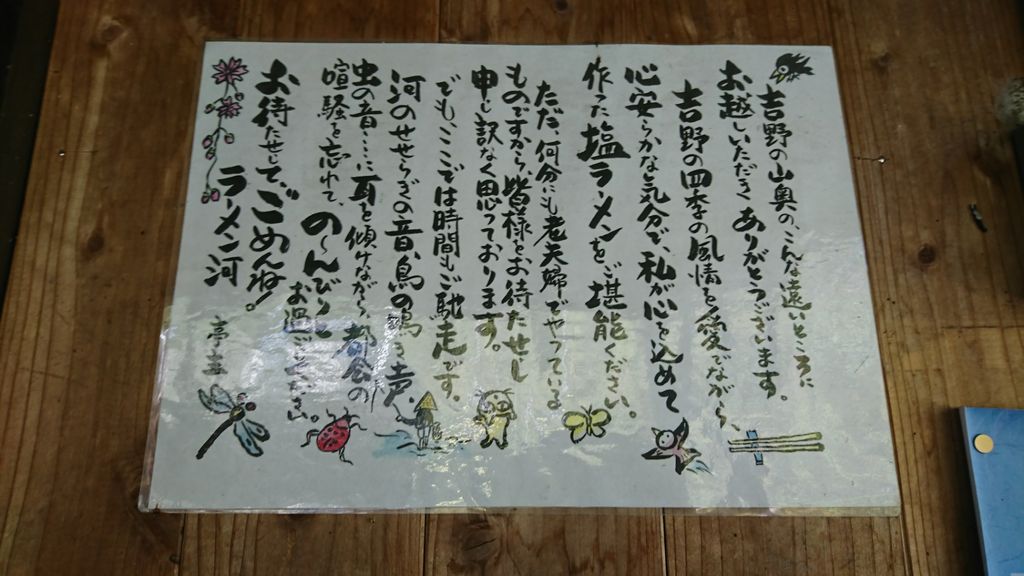 吉野の山奥の、こんな遠いところに
お越しいただき ありがとうございます。
吉野の四季の風情を愛でながら、
心安らかな気分で、私が心を込めて
作った塩ラーメンをご堪能ください。
ただ、何分にも老夫婦でやっている
ものですから、皆様をお待たせし
申し訳なく思っております。
でも、ここでは時間もご馳走です。
河のせせらぎの音、鳥の鳴き声、
虫の音……に耳を傾けながら、都会の
喧騒を忘れて、の〜んびりと
お過ごしください。
お待たせして、ごめんね!
ラーメン河 亭主